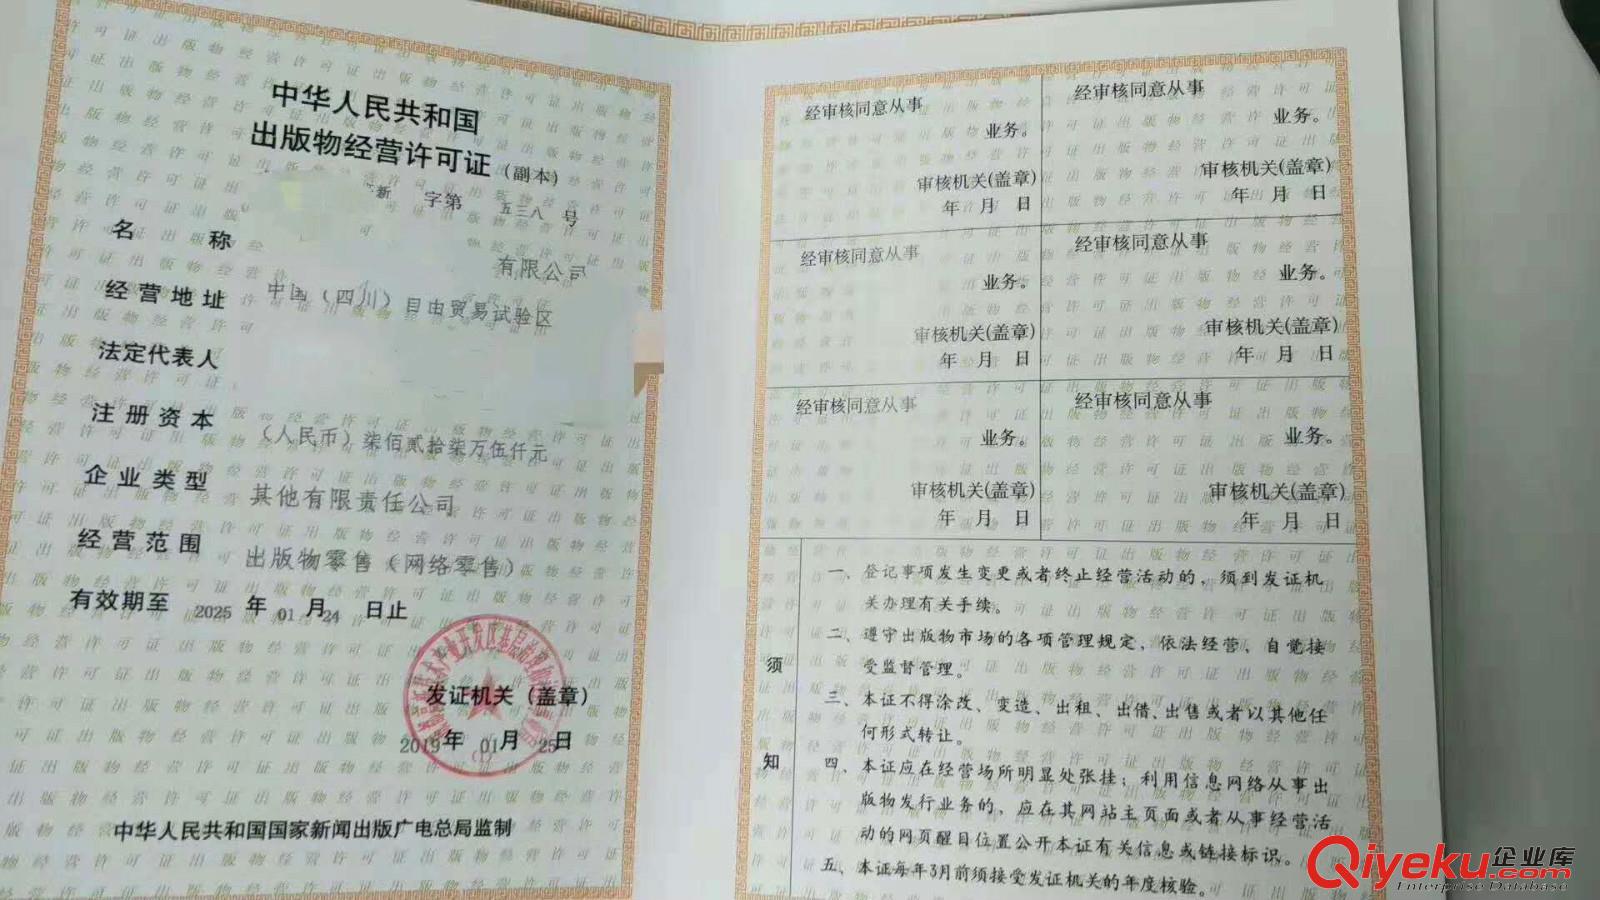 中华人民共和国
出版物经营许可证（副本）
新 字第 五三八 号
名 称
有限公司
经营地址 中国（四川）自由贸易试验区
法定代表人
注册资本 （人民币）柒佰贰拾柒万伍仟元
企业类型 其他有限责任公司
经营范围 出版物零售（网络零售）
有效期至 2025 年 01 月 24 日止
发证机关（盖章）
2019年 01月 25日
中华人民共和国国家新闻出版广电总局监制
经审核同意从事
业务。
审核机关(盖章)
年 月 日
经审核同意从事
业务。
审核机关(盖章)
年 月 日
经审核同意从事
业务。
审核机关(盖章)
年 月 日
经审核同意从事
业务。
审核机关(盖章)
年 月 日
经审核同意从事
业务。
审核机关(盖章)
年 月 日
经审核同意从事
业务。
审核机关(盖章)
年 月 日
须知
一、登记事项发生变更或者终止经营活动的，须到发证机
关办理有关手续。
二、遵守出版物市场的各项管理规定，依法经营、自觉接
受监督管理。
三、本证不得涂改、变造、出租、出借、出售或者以其他任
何形式转让。
四、本证应在经营场所明显处张挂；利用信息网络从事出
版物发行业务的，应在其网站主页面或者从事经营活
动的网页醒目位置公开本证有关信息或链接标识。
五、本证每年3月前须接受发证机关的年度核验。
Qiyeku.com 企业库
Enterprise Database